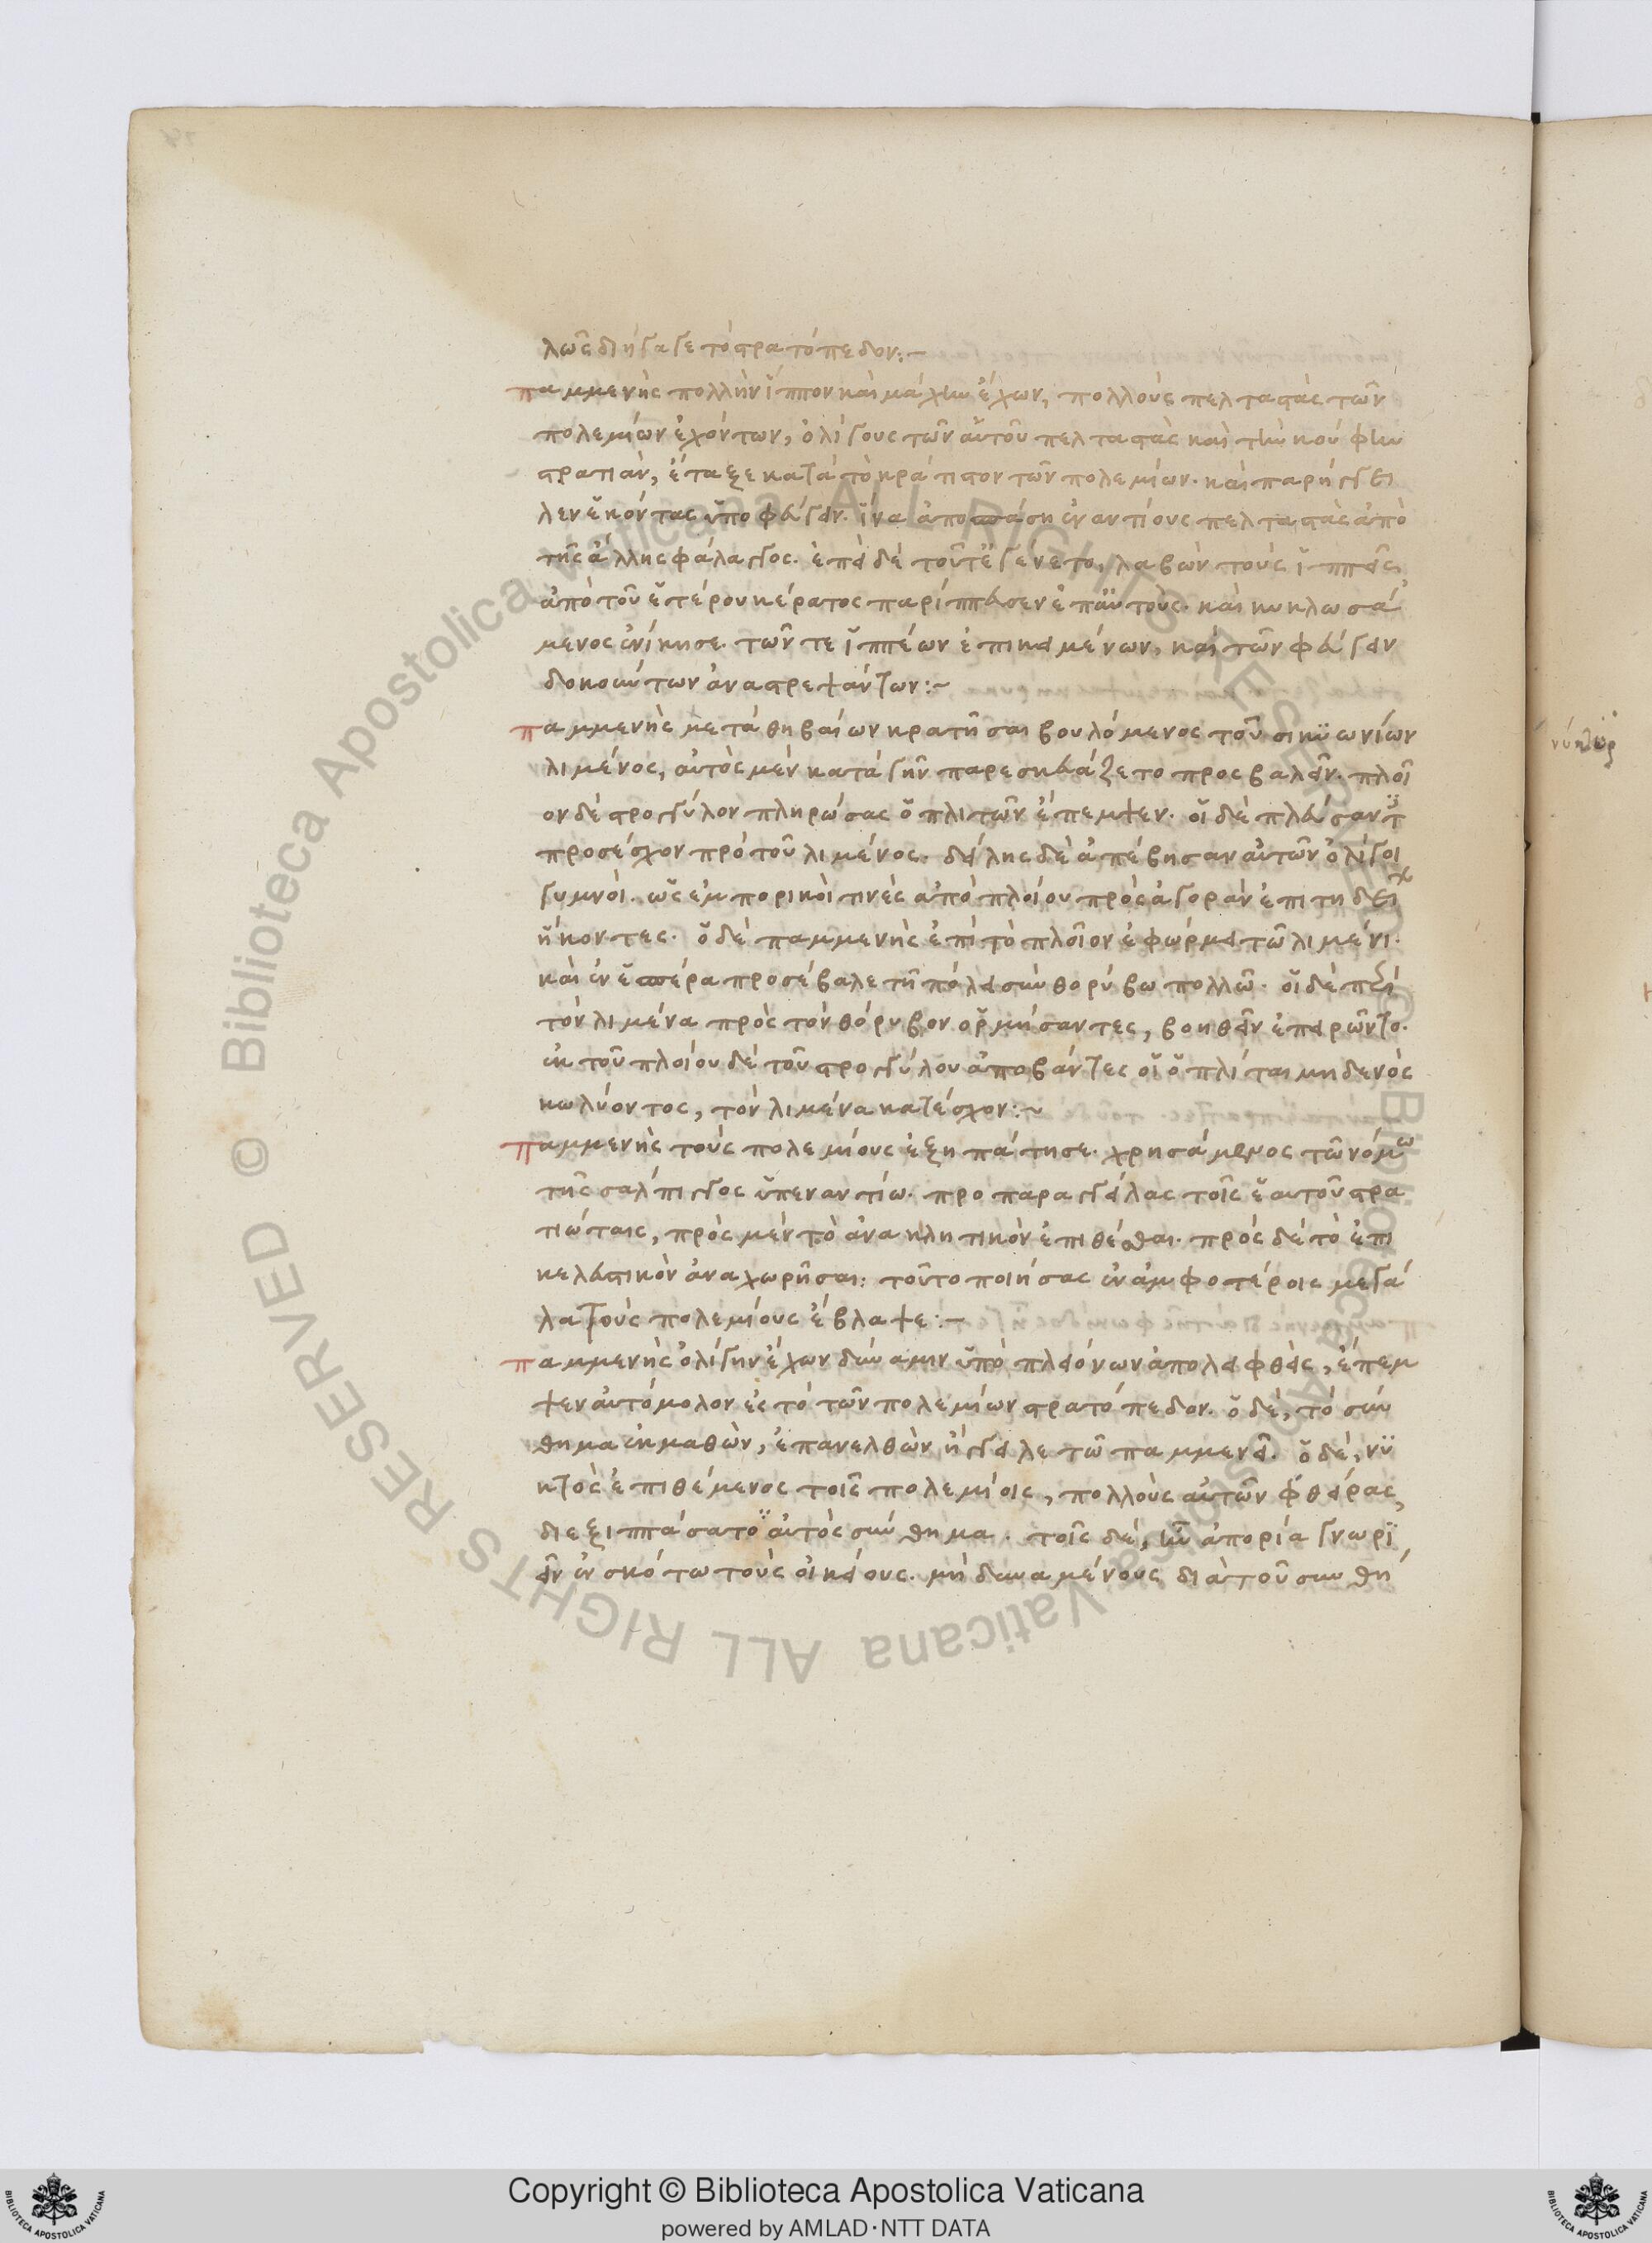 λῶς διήγαγε τὸ στρατόπεδον:~
παμμενὴς πολλὴν ἵππον καὶ μάχην ἔχων, πολλοὺς πελταστὰς τῶν
πολεμίων ἐχόντων, ὀλίγους τῶν αὑτοῦ πελταστὰς καὶ τὴν κούφην
στρατιὰν, ἔταξε κατὰ τὸ κράτιστον τῶν πολεμίων. καὶ παρήγγει
λεν ἑκόντας ὑποφεύγειν. ἵνα ἀποσπάση ἐναντίους πελταστὰς ἀπὸ
τῆς ἄλλης φάλαγγος. ἐπεὶ δὲ τοῦτ' ἐγένετο, λαβὼν τοὺς ἱππεῖς
ἀπὸ τοῦ ἑτέρου κέρατος παρίππευσεν ἐπ' αὐτούς. καὶ κυκλωσά
μενος ἐνίκησε. τῶν τε ἱππέων ἐπικειμένων, καὶ τῶν φεύγειν
δοκούντων ἀναστρεψάντων:~
παμμενὴς μετὰ θηβαίων κρατῆσαι βουλόμενος τοῦ σικυωνίων
λιμένος, αὐτὸς μὲν κατὰ γῆν παρεσκευάζετο προσβαλεῖν. πλοῖ
ον δὲ στρογγύλον πληρώσας ὁπλιτῶν ἔπεμψεν. οἱ δὲ πλεύσαντ
προσέσχον πρὸ τοῦ λιμένος. δείλης δὲ ἀπέβησαν αὐτῶν ὀλίγοι
γυμνοὶ. ὡς ἐμπορικοὶ τινὲς ἀπὸ πλοίου πρὸς ἀγορὰν ἐπιτηδει
ἥκοντες. ὁ δὲ παμμενὴς ἐπὶ τὸ πλοῖον ἐφώρμει τῶ λιμένι.
καὶ ἐν ἑσπέρα προσέβαλε τῆ πόλει σὺν θορύβω πολλῶ. οἱ δὲ περὶ
τὸν λιμένα πρὸς τὸν θόρυβον ὁρμήσαντες, βοηθεῖν ἐπειρῶντο.
ἐκ τοῦ πλοίου δὲ τοῦ στρογγύλου ἀποβάντες οἱ ὁπλίται μηδενὸς
κωλύοντος, τὸν λιμένα κατέσχον:~
παμμενὴς τοὺς πολεμίους ἐξηπάτησε. χρησάμενος τῶ νόμω
τῆς σαλπιγγος ὑπεναντίω. προπαραγγείλας τοῖς ἑαυτοῦ στρα
τιώταις, πρὸς μὲν τὸ ἀνακλητικὸν ἐπιθέσθαι. πρὸς δὲ τὸ ἐπι
κελευστικὸν ἀναχωρῆσαι: τοῦτο ποιήσας ἐν ἀμφοτέροις μεγά
λα τοὺς πολεμίους ἔβλαψε:~
παμμενὴς ὀλίγην ἔχων δύναμιν ὑπὸ πλειόνων ἀπολειφθεὶς, ἔπεμ
ψεν αὐτόμολον ἐς τὸ τῶν πολεμίων στρατόπεδον. ὁ δὲ, τὸ σύν
θημα ἐκμαθὼν, ἐπανελθὼν ἤγγειλε τῶ παμμενεῖ. ὁ δὲ, νυ
κτὸς ἐπιθέμενος τοῖς πολεμίοις, πολλοὺς αὐτῶν φθείρας,
διεξιππάσατο αὐτὸς σύνθημα. τοῖς δὲ, ἦν ἀπορία γνωρί
ειν ἐν σκότω τοὺς οἰκείους. μὴ δυναμένους διὰ τοῦ συνθή
Copyright © Biblioteca Apostolica Vaticana
powered by AMLAD·NTT DATA
© Biblioteca Apostolica Vaticana ALL RIGHTS RESERVED
© Biblioteca Apostolica Vaticana ALL RIGHTS RESERVED